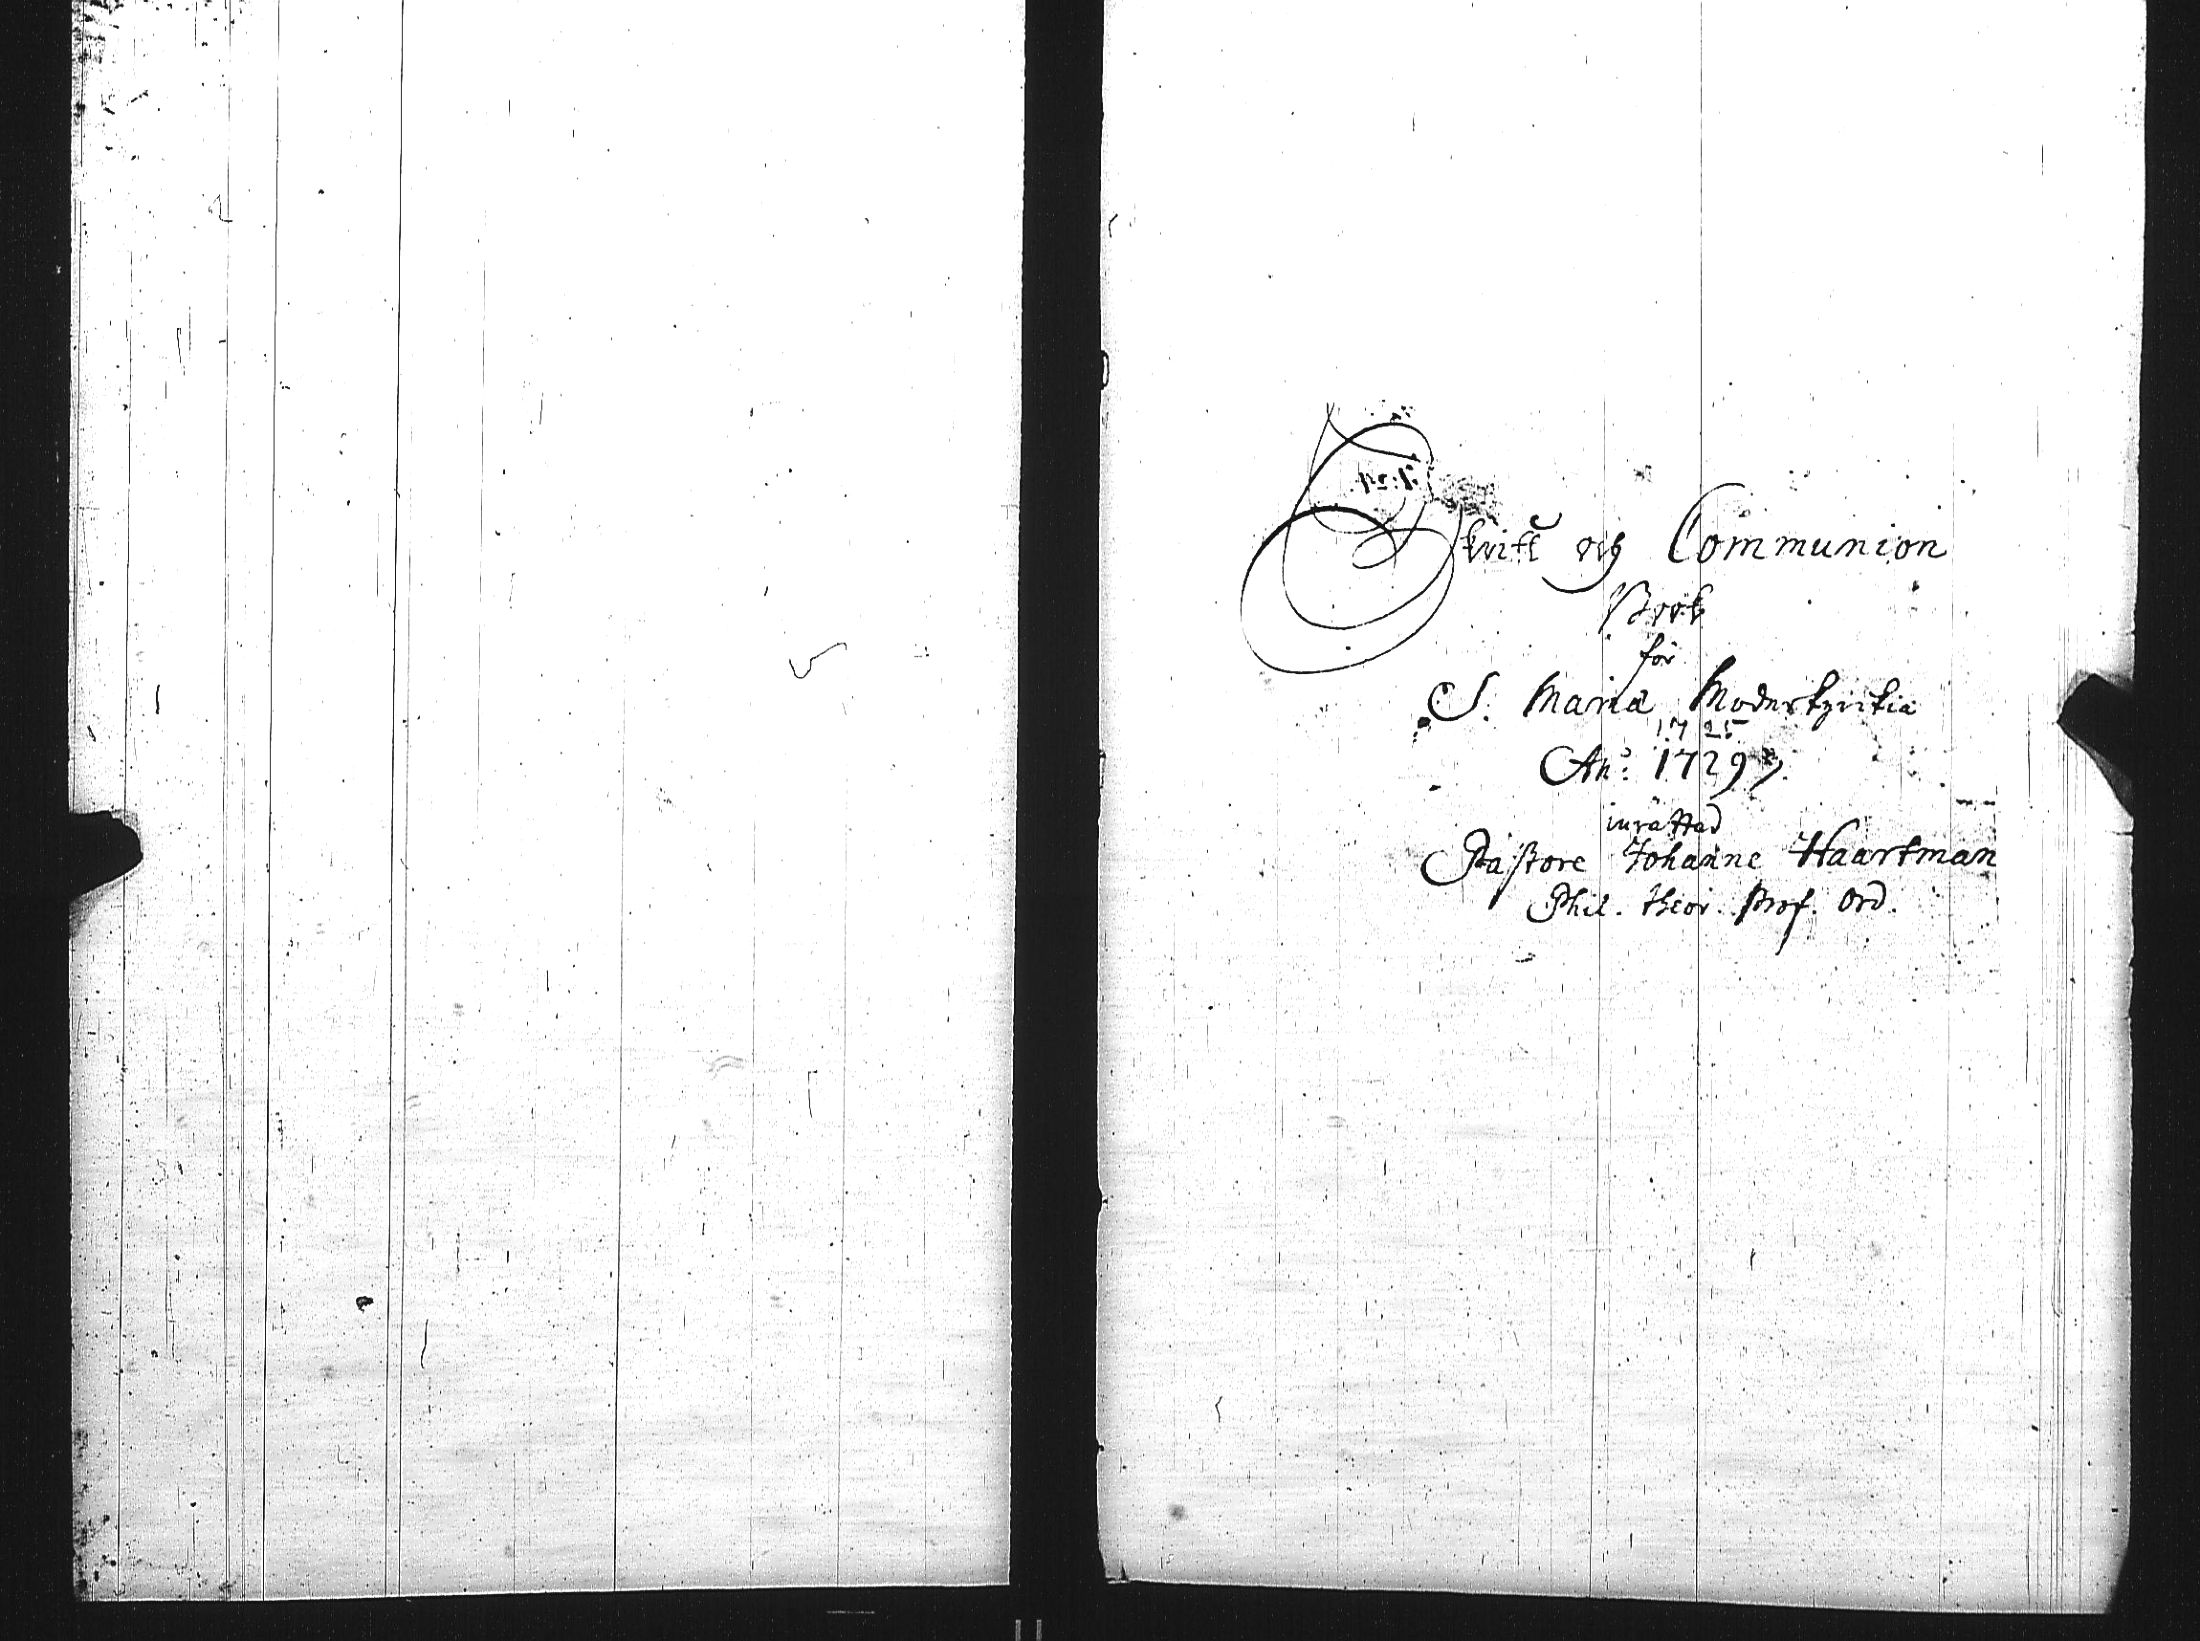 Skrift och Communion
Book
för
S. Mariæ Moderkyrkia
1725
An:o 1729
inrättad
Pastore Johanne Haartman
Phil. theor. Prof. Ord.